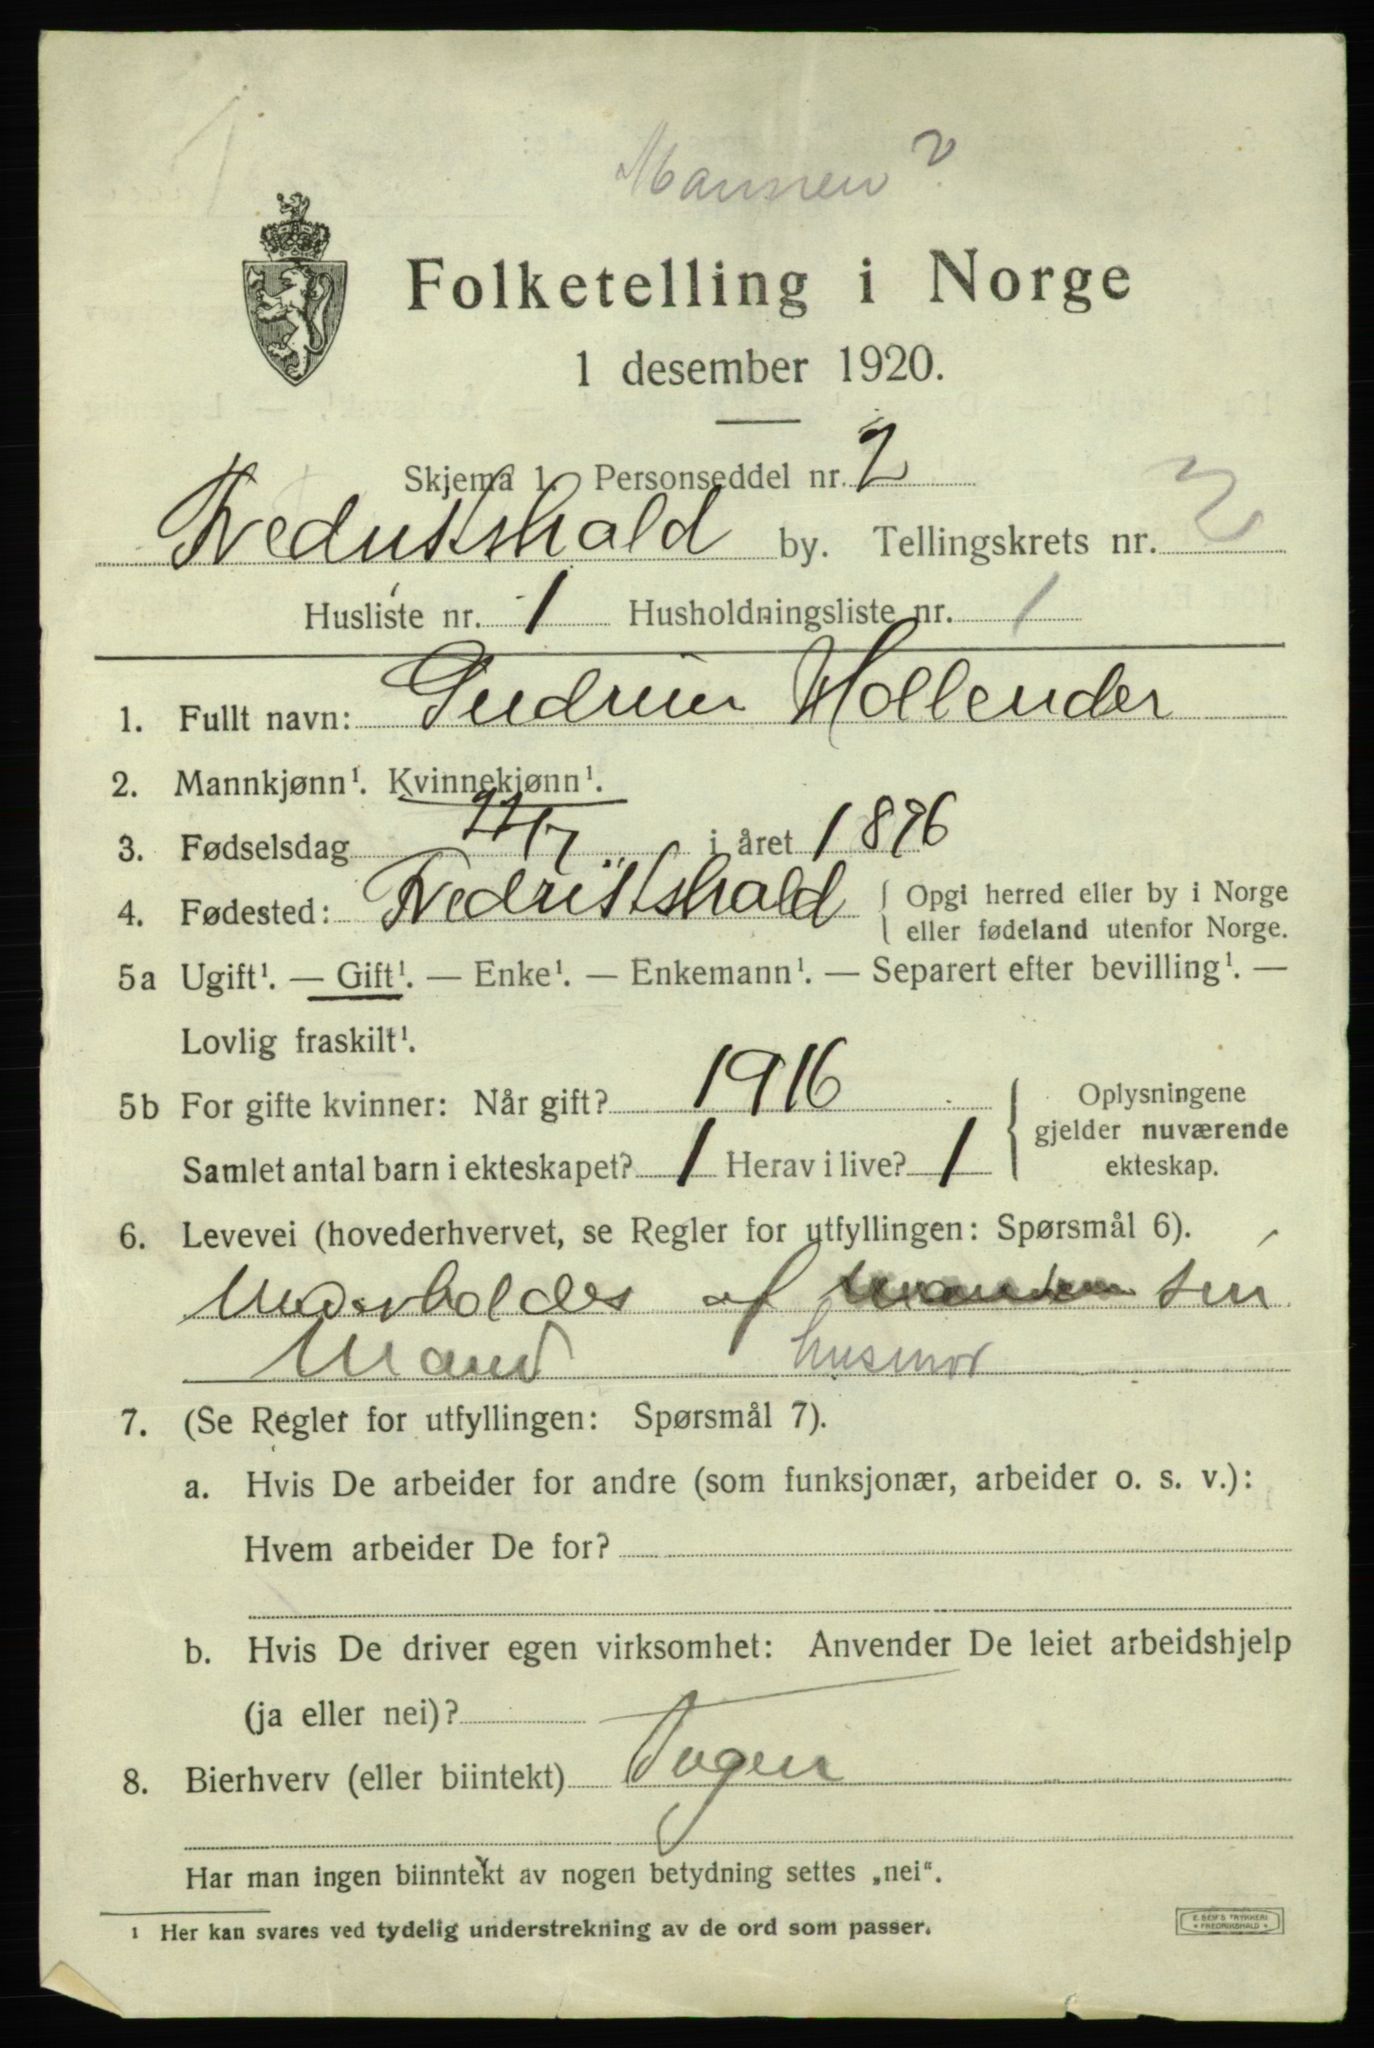 Mannen?
Folketelling i Norge
1 desember 1920.
Skjema 1. Personseddel nr. 2
Fredrikshald by. Tellingskrets nr. 3
Husliste nr. 1 Husholdningsliste nr. 1
1. Fullt navn: Gudrun Hollender
2. Mannkjønn¹. Kvinnekjønn¹.
3. Fødselsdag i året 1896
4. Fødested: Fredrikshald { Opgi herred eller by i Norge
eller fødeland utenfor Norge.
5a Ugift¹. — Gift¹. — Enke¹. — Enkemann¹. — Separert efter bevilling¹. —
Lovlig fraskilt¹.
5b For gifte kvinner: Når gift? 1916
Samlet antal barn i ekteskapet? 1 Herav i live? 1
Oplysningene
gjelder nuværende
ekteskap.
6. Levevei (hovederhvervet, se Regler for utfyllingen: Spørsmål 6).
Underholdes af sin
Mand husmor
7. (Se Regler for utfyllingen: Spørsmål 7).
a. Hvis De arbeider for andre (som funksjonær, arbeider o. s. v.):
Hvem arbeider De for?
b. Hvis De driver egen virksomhet: Anvender De leiet arbeidshjelp
(ja eller nei)?
8. Bierhverv (eller biintekt) Ingen
Har man ingen biinntekt av nogen betydning settes „nei“.
¹ Her kan svares ved tydelig understrekning av de ord som passer.
E. SEM'S TRYKKERI
* FREDRIKSHALD *